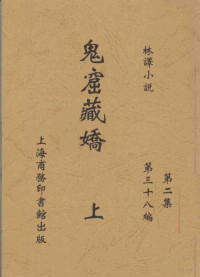 林譯小說
第二集
第三十八編
鬼窟藏嬌
上
上海商務印書館出版